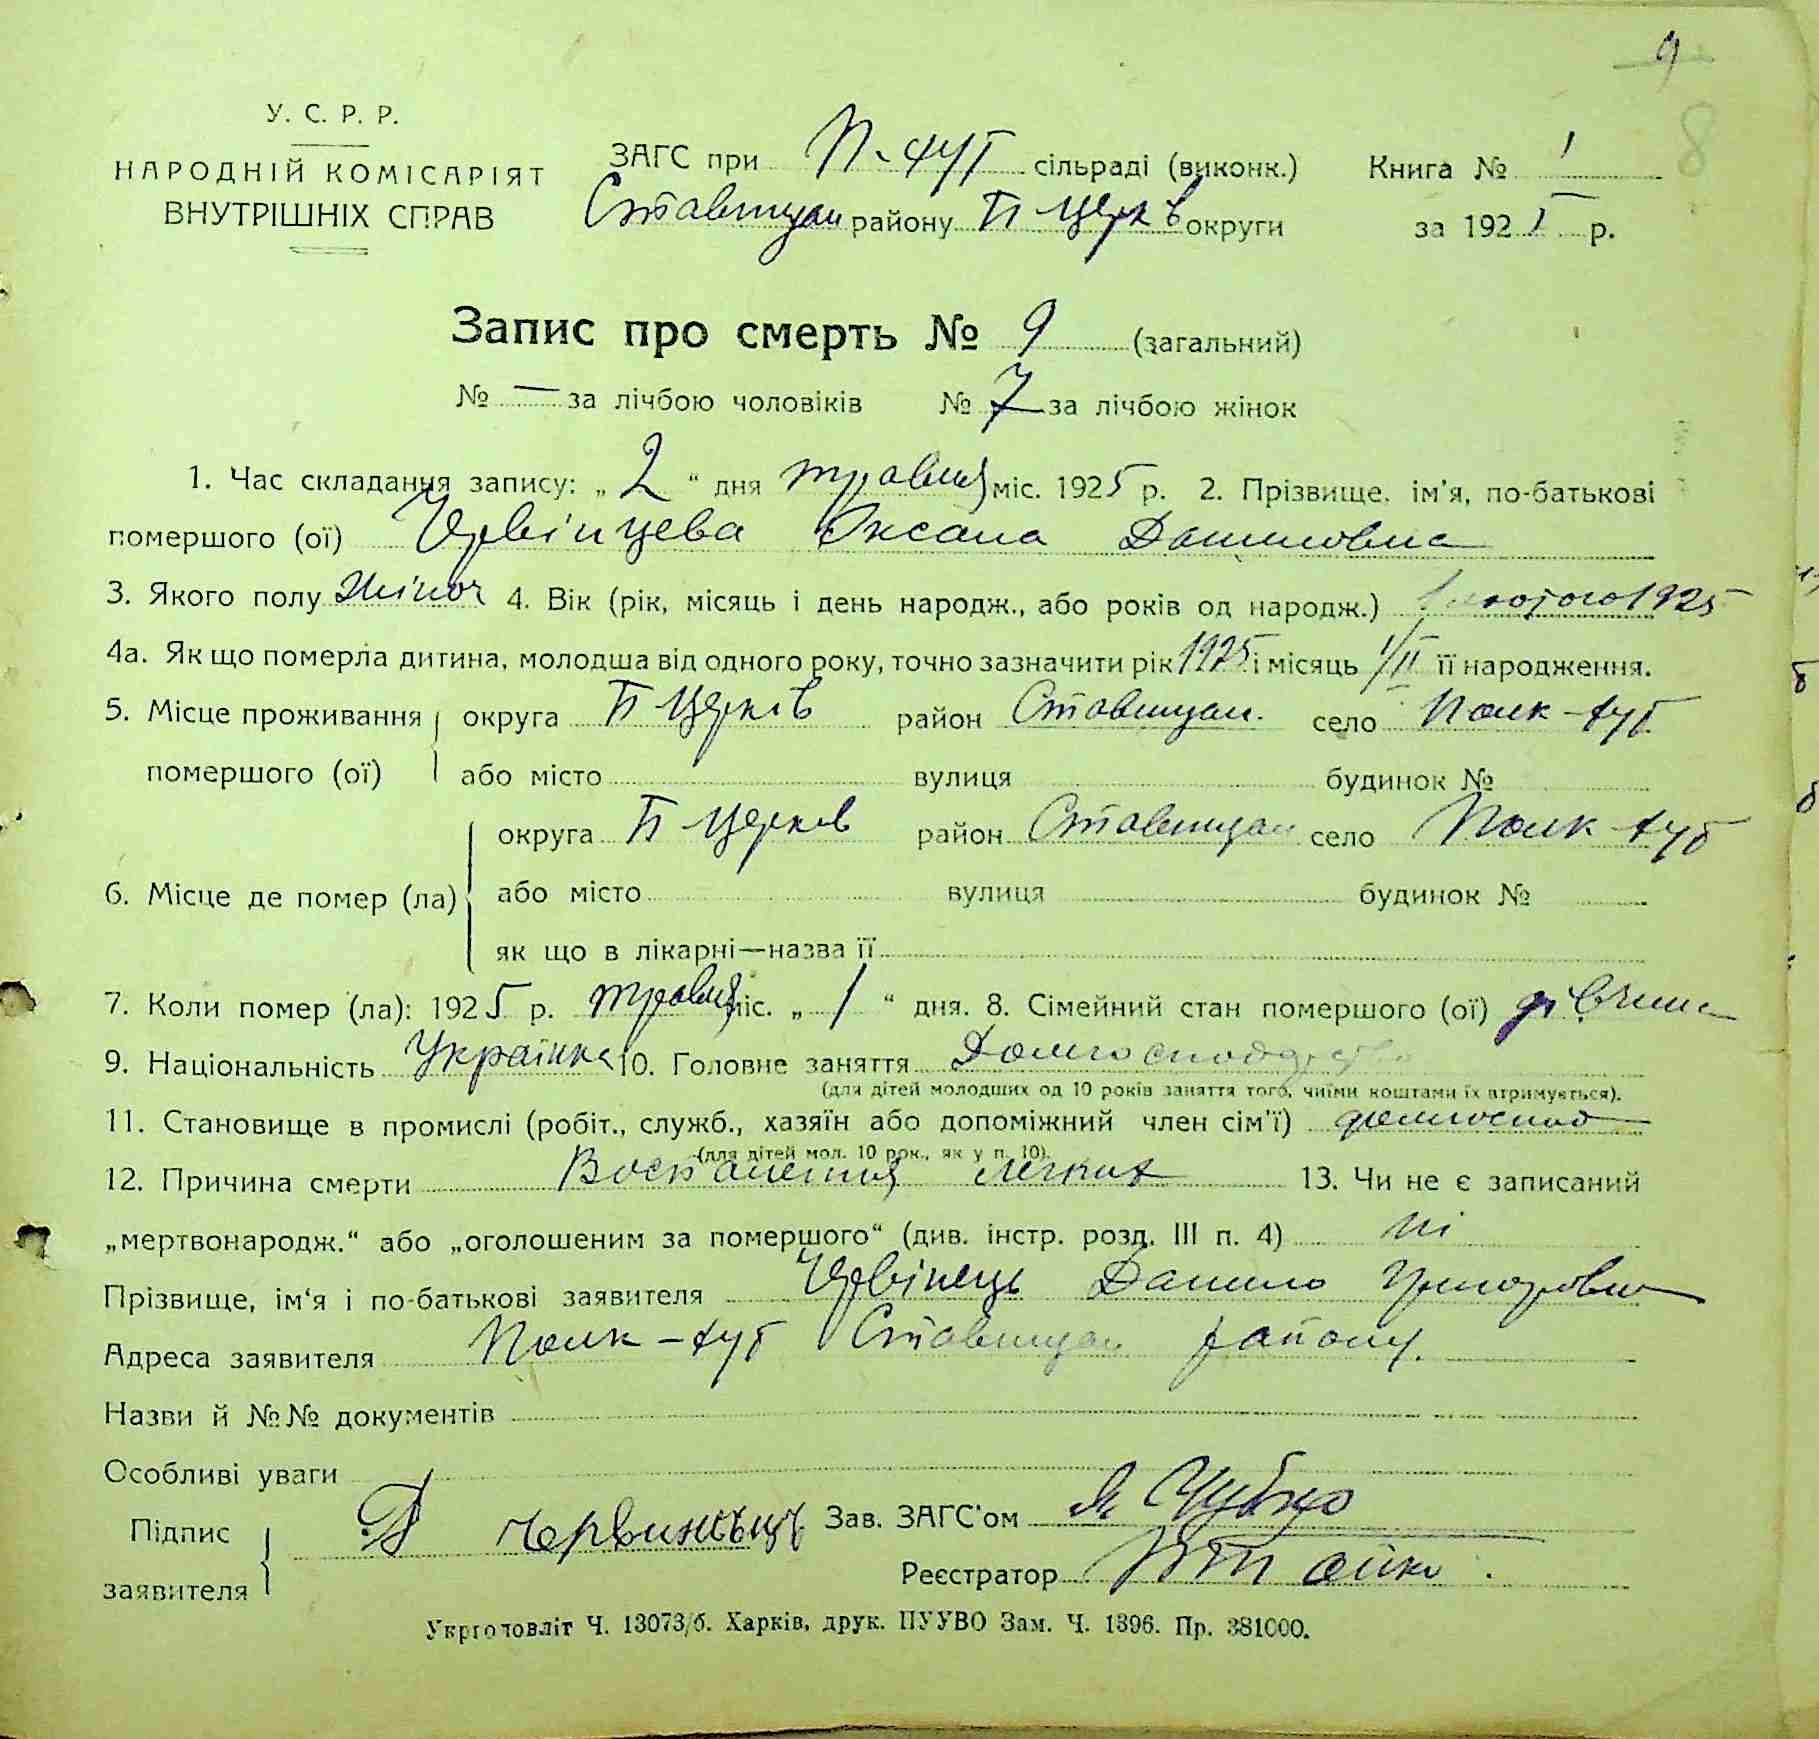 9
8
У. С. Р. Р.
НАРОДНІЙ КОМІСАРІЯТ
ВНУТРІШНІХ СПРАВ
ЗАГС при П-хут сільраді (виконк.) Книга № 1
Ставищан району Б Церків округи за 1925 р.
Запис про смерть № 9 (загальний)
№ — за лічбою чоловіків № 7 за лічбою жінок
1. Час складання запису: „ 2 “ дня травня міс. 1925 р. 2. Прізвище. ім'я, по-батькові
помершого (ої) Червінцева Оксана Даниловна
3. Якого полу жіноч 4. Вік (рік, місяць і день народж., або років од народж.) 1 лютого 1925
4а. Як що померла дитина, молодша від одного року, точно зазначити рік 1925 і місяць 1/II її народження.
5. Місце проживання округа Б Церків район Ставищан. село Полк-хут
помершого (ої) або місто вулиця будинок №
округа Б Церков район Ставищан село Полк-хут
6. Місце де помер (ла) або місто вулиця будинок №
як що в лікарні—назва її
7. Коли помер (ла): 1925 р. травня міс. „ 1 “ дня. 8. Сімейний стан помершого (ої) дівчина
9. Національність Українка 10. Головне заняття
(для дітей молодших од 10 років заняття того, чиїми коштами їх втримується).
11. Становище в промислі (робіт., служб., хазяїн або допоміжний член сім'ї) домгоспод
(для дітей мол. 10 рок., як у п. 10).
12. Причина смерти Воспаления легких 13. Чи не є записаний
„мертвонародж.“ або „оголошеним за помершого“ (див. інстр. розд. III п. 4) ні
Прізвище, ім'я і по-батькові заявителя Червінець Данило Григорович
Адреса заявителя Полк-хут Ставищан району.
Назви й №№ документів
Особливі уваги
Підпис Д Червинець Зав. ЗАГС'ом Я Чубко
заявителя Реєстратор
Укрголовліт Ч. 13073/б. Харків, друк. ПУУВО Зам. Ч. 1396. Пр. 381000.